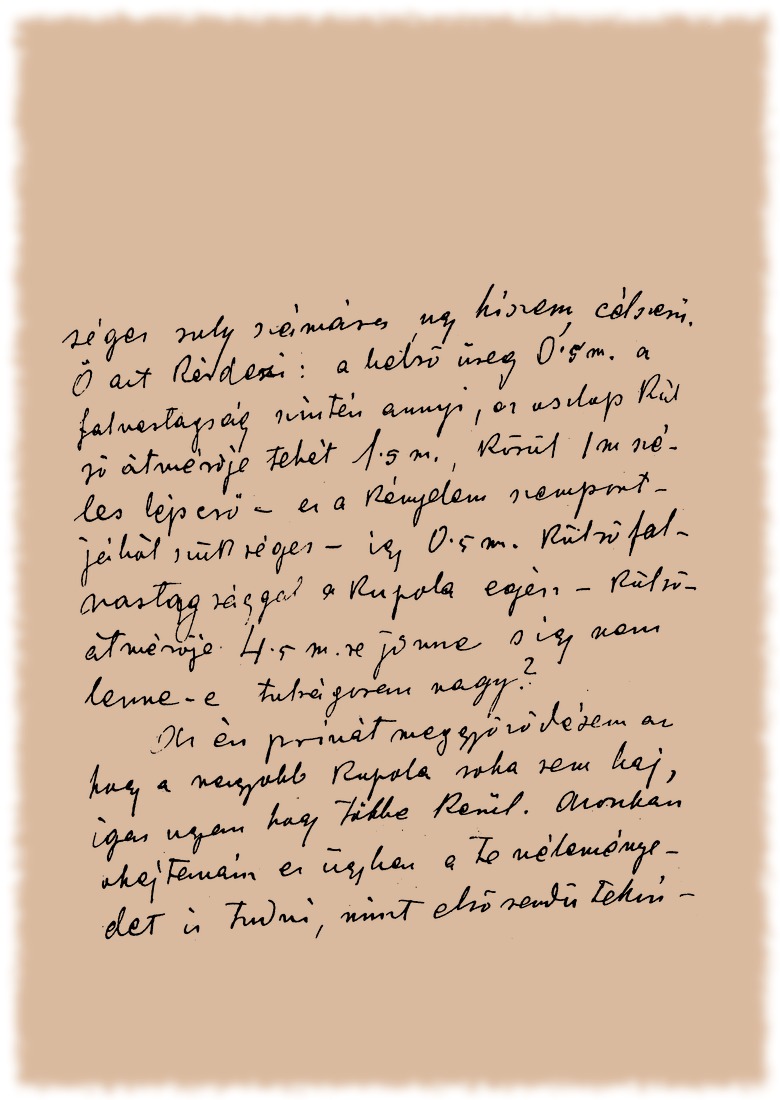 séges suly számára, ugy hiszem, célszerü.
Ő azt kérdezi: a belső üreg 0·5 m. a
falvastagság szintén annyi, az oszlop kül
ső átmérője tehát 1·5 m., körül 1 m szé-
les lépcső – ez a kényelem szempont-
jából szükséges – igy 0·5 m. külső fal-
vastagsággal a kupola egész – külső-
átmérője 4·5 m.re jönne s igy nem
lenne-e tulságosan nagy?
Az én privát meggyőződésem az
hogy a nagyobb kupola soha sem baj,
igaz ugyan hogy többe kerül. Azonban
ohajtanám ez ügyben a Te véleménye-
det is tudni, mint elsőrendü tekin-